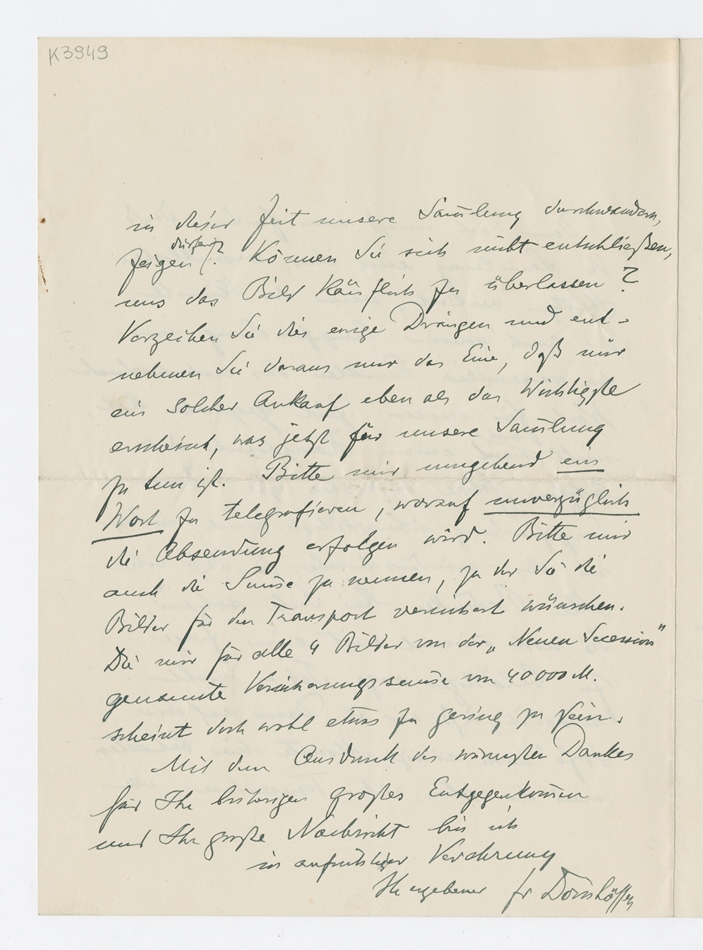 K3949
in dieser Zeit unsere Sammlung durchwandern,
zeigen dürfen? Können Sie sich nicht entschließen,
uns das Bild käuflich zu überlassen?
Verzeihen Sie dies Drängen und ent-
nehmen Sie daraus nur das Eine, daß mir
ein solcher Ankauf eben als das Wichtigste
erscheint, was jetzt für unsere Sammlung
zu tun ist. Bitte mir umgehend ein
Wort zu telegrafieren, worauf unverzüglich
die Absendung erfolgen wird. Bitte mir
auch die Summe zu nennen, zu der Sie die
Bilder für den Transport versichert wünschen.
Die mir für alle 4 Bilder von der „Neuen Secession"
genannte Versicherungssumme von 40000 M.
scheint doch wohl etwas zu gering zu sein.
Mit dem Ausdruck des wärmsten Dankes
für Ihr bisheriges großes Entgegenkommen
und Ihre große Nachsicht bin ich
in aufrichtiger Verehrung
Ihr ergebener Fr Dörnhöffer